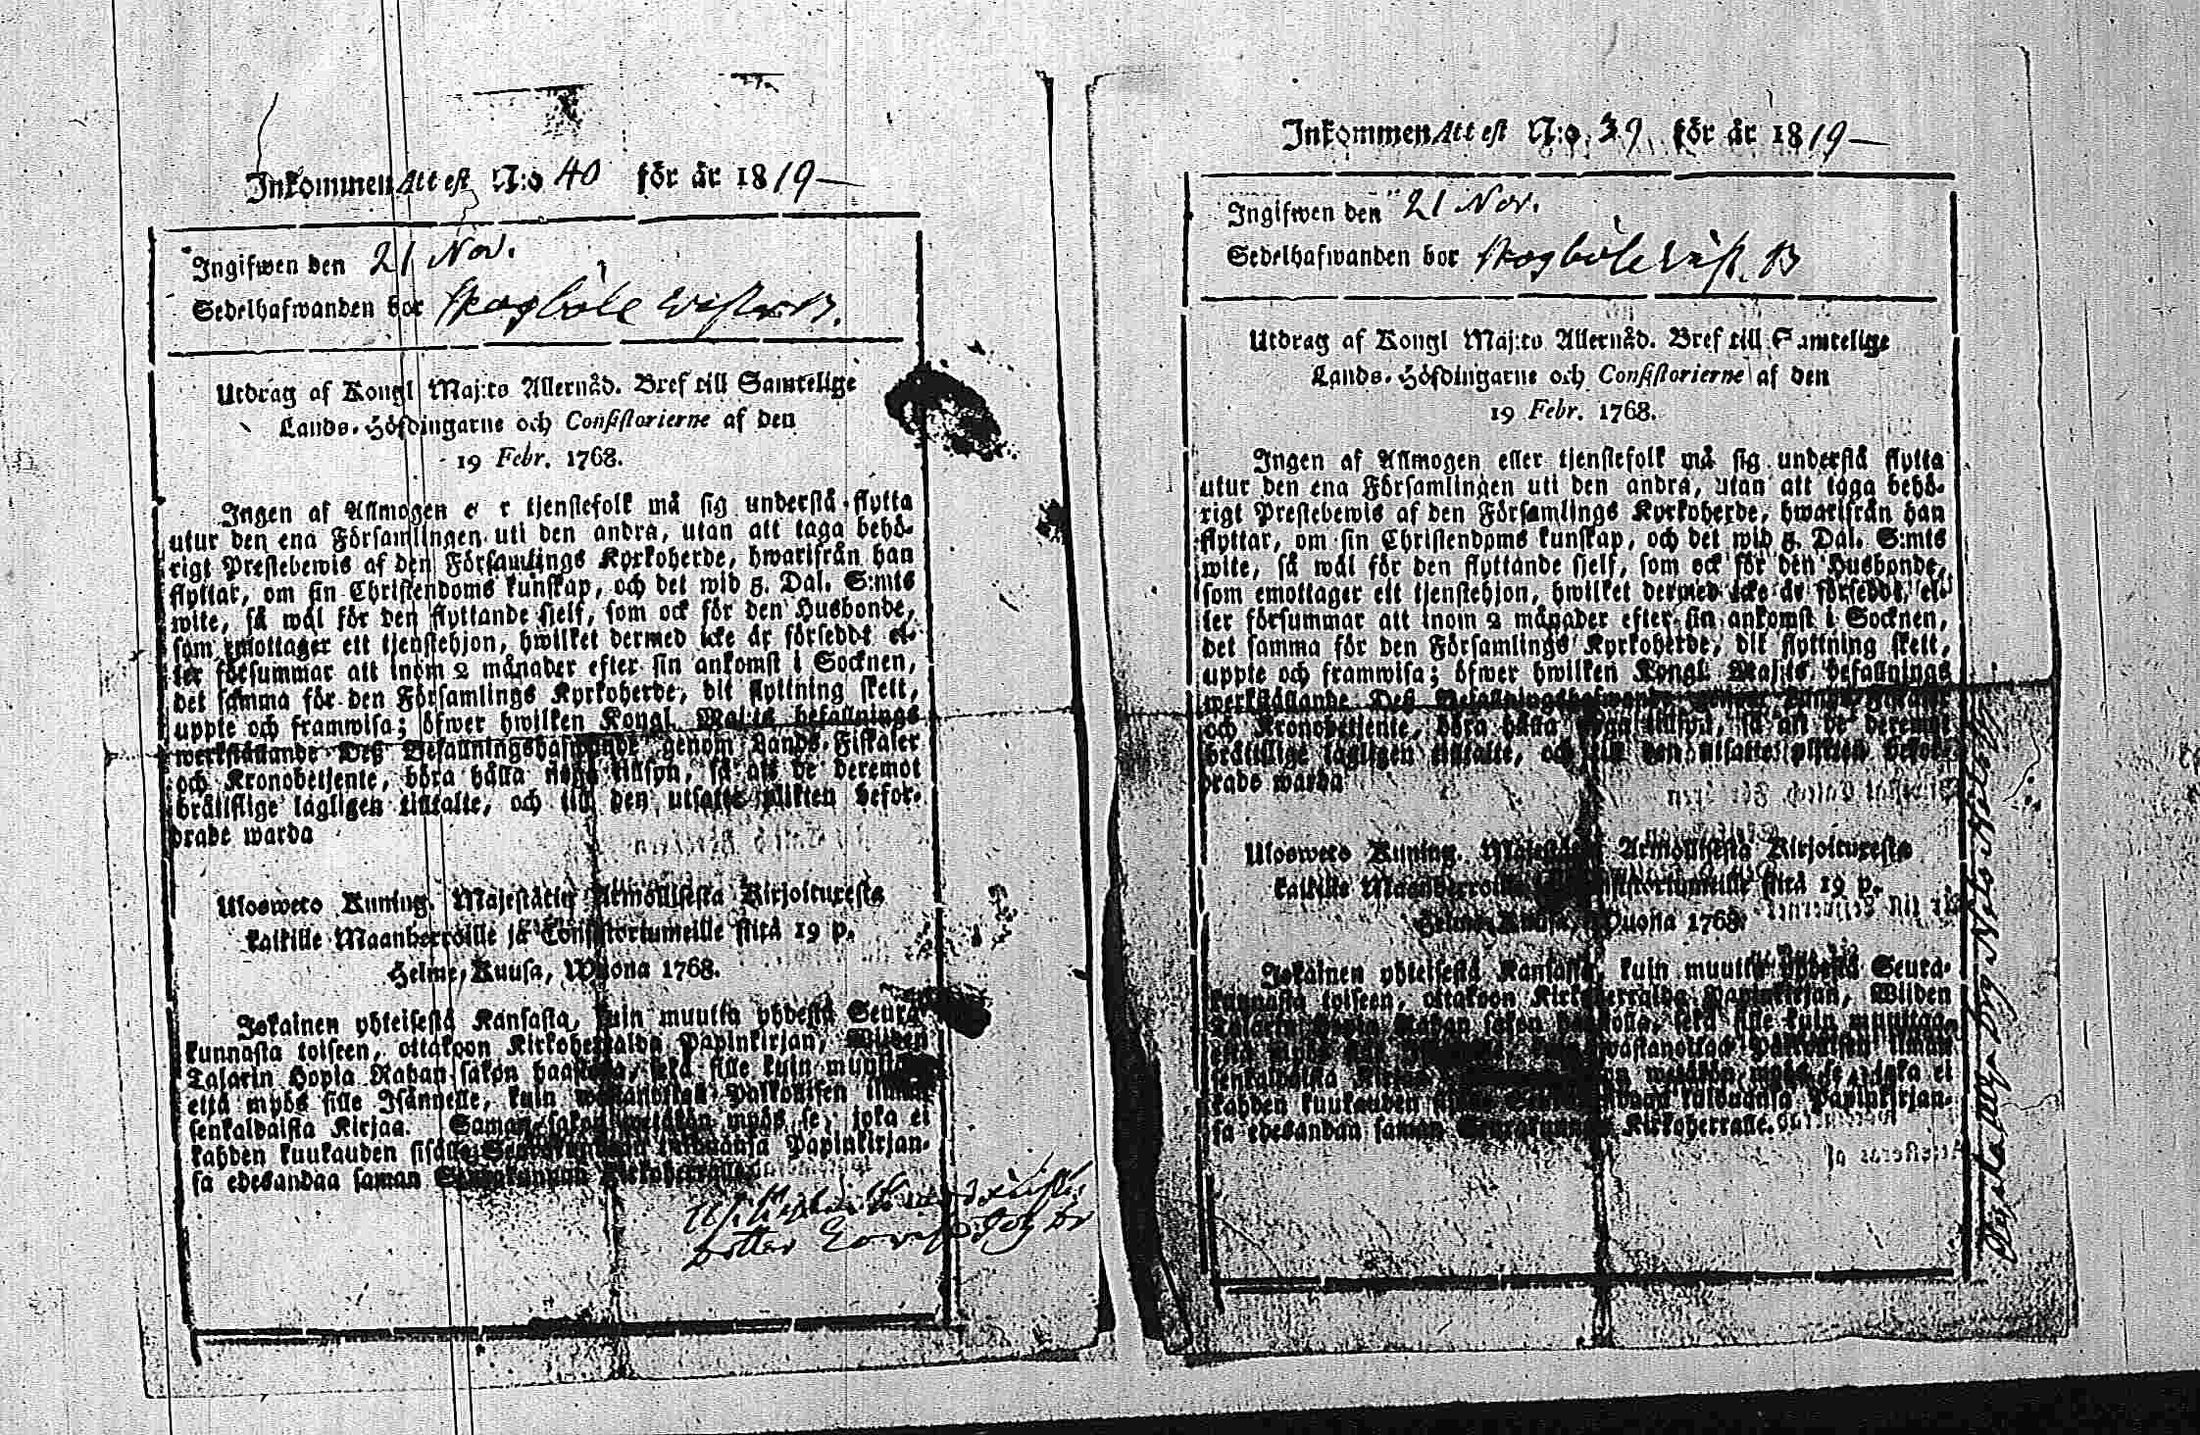 Inkommen Attest N:o 40 för år 1819
Ingifwen den 21 Nov.
Sedelhafwanden bor Skogböle Wester B.
Utdrag af Kongl Maj:ts Allernåd. Bref till Samtelige
Lands-Höfdingarne och Consistorierne af den
19 Febr. 1768.
Ingen af Allmogen e r tjenstefolk må sig understå flytta
utur den ena Församlingen uti den andra, utan att taga behö-
rigt Prestebewis af den Församlings Kyrkoherde, hwarifrån han
flyttar, om sin Christendoms kunskap, och det wid 5. Dal. S:mts
wite, så wäl för den flyttande sjelf, som ock för den Husbonde,
som emottager ett tjenstehjon, hwilket dermed icke är förseddt el-
ler försummar att inom 2 månader efter sin ankomst i Socknen,
det samma för den Församlings Kyrkoherde, dit flyttning skett,
uppte och framwisa; öfwer hwilken Kongl. Maj:ts befallnings
werkställande Deß Befallningshafwande genom Lands-Fiskaler
och Kronobetjente, böra hålla noga tillsyn, så att de deremot
brättslige lagligen tilltalte, och till den utsatte plikten befor-
drade warda
Ulosweto Kuning. Majestätin Armollisesta Kirjoituxesta
kaikille Maanherroille ja Consistoriumeille siitä 19 p.
Helme-Kuusa, Wuona 1768.
Jokainen yhteisestä Kansasta, kuin muutta yhdestä Seura-
kunnasta toiseen, ottakoon Kirkoherralda Papinkirjan, Wiiden
Talarin Hopia Rahan sakon haastolla, sekä sille kuin muuttaa
että myös sille Isännelle, kuin wastanottaa Palkollisen ilman
senkaldaista Kirjaa. Saman sakon wetäkön myös se, joka ei
kahden kuukauden sisälle Seurakundaan tulduansa Papinkirjan-
sa edesandaa saman Seurakunnan Kirkoherralle.
Inkommen Attest N:o 39 för år 1819
Ingifwen den 21 Nov.
Sedelhafwanden bor Skogböle Wäst. B
Utdrag af Kongl Maj:ts Allernåd. Bref till Samtelige
Lands-Höfdingarne och Consistorierne af den
19 Febr. 1768.
Ingen af Allmogen eller tjenstefolk må sig understå flytta
utur den ena Församlingen uti den andra, utan att taga behö-
rigt Prestebewis af den Församlings Kyrkoherde, hwarifrån han
flyttar, om sin Christendoms kunskap, och det wid 5. Dal. S:mts
wite, så wäl för den flyttande sjelf, som ock för den Husbonde,
som emottager ett tjenstehjon, hwilket dermed icke är försedde, el-
ler försummar att inom 2 månader efter sin ankomst i Socknen,
det samma för den Församlings Kyrkoherde, dit flyttning skett,
uppte och framwisa; öfwer hwilken Kongl. Maj:ts befallnings
werkställande Deß Befallningshafwande
och Kronobetjente, böra hålla noga tillsyn, så att de deremot
brättslige lagligen tilltalte, och till den utsatte plikten befor-
drade warda
Ulosweto Kuning. Majestätin Armollisesta Kirjoituxesta
kaikille Maanherroille ja Consistoriumeille siitä 19 p.
Helme-Kuusa, Wuona 1768.
Jokainen yhteisestä Kansasta, kuin muutta yhdestä Seura-
kunnasta toiseen, ottakoon Kirkoherralda Papinkirjan, Wiiden
Talarin Hopia Rahan sakon haastolla, sekä sille kuin muuttaa
että myös wastanottaa Palkollisen ilman
senkaldaista Kirjaa. wetäkön myös se, joka ei
kahden kuukauden tulduansa Papinkirjan-
sa edesandaa saman Seurakunnan Kirkoherralle.